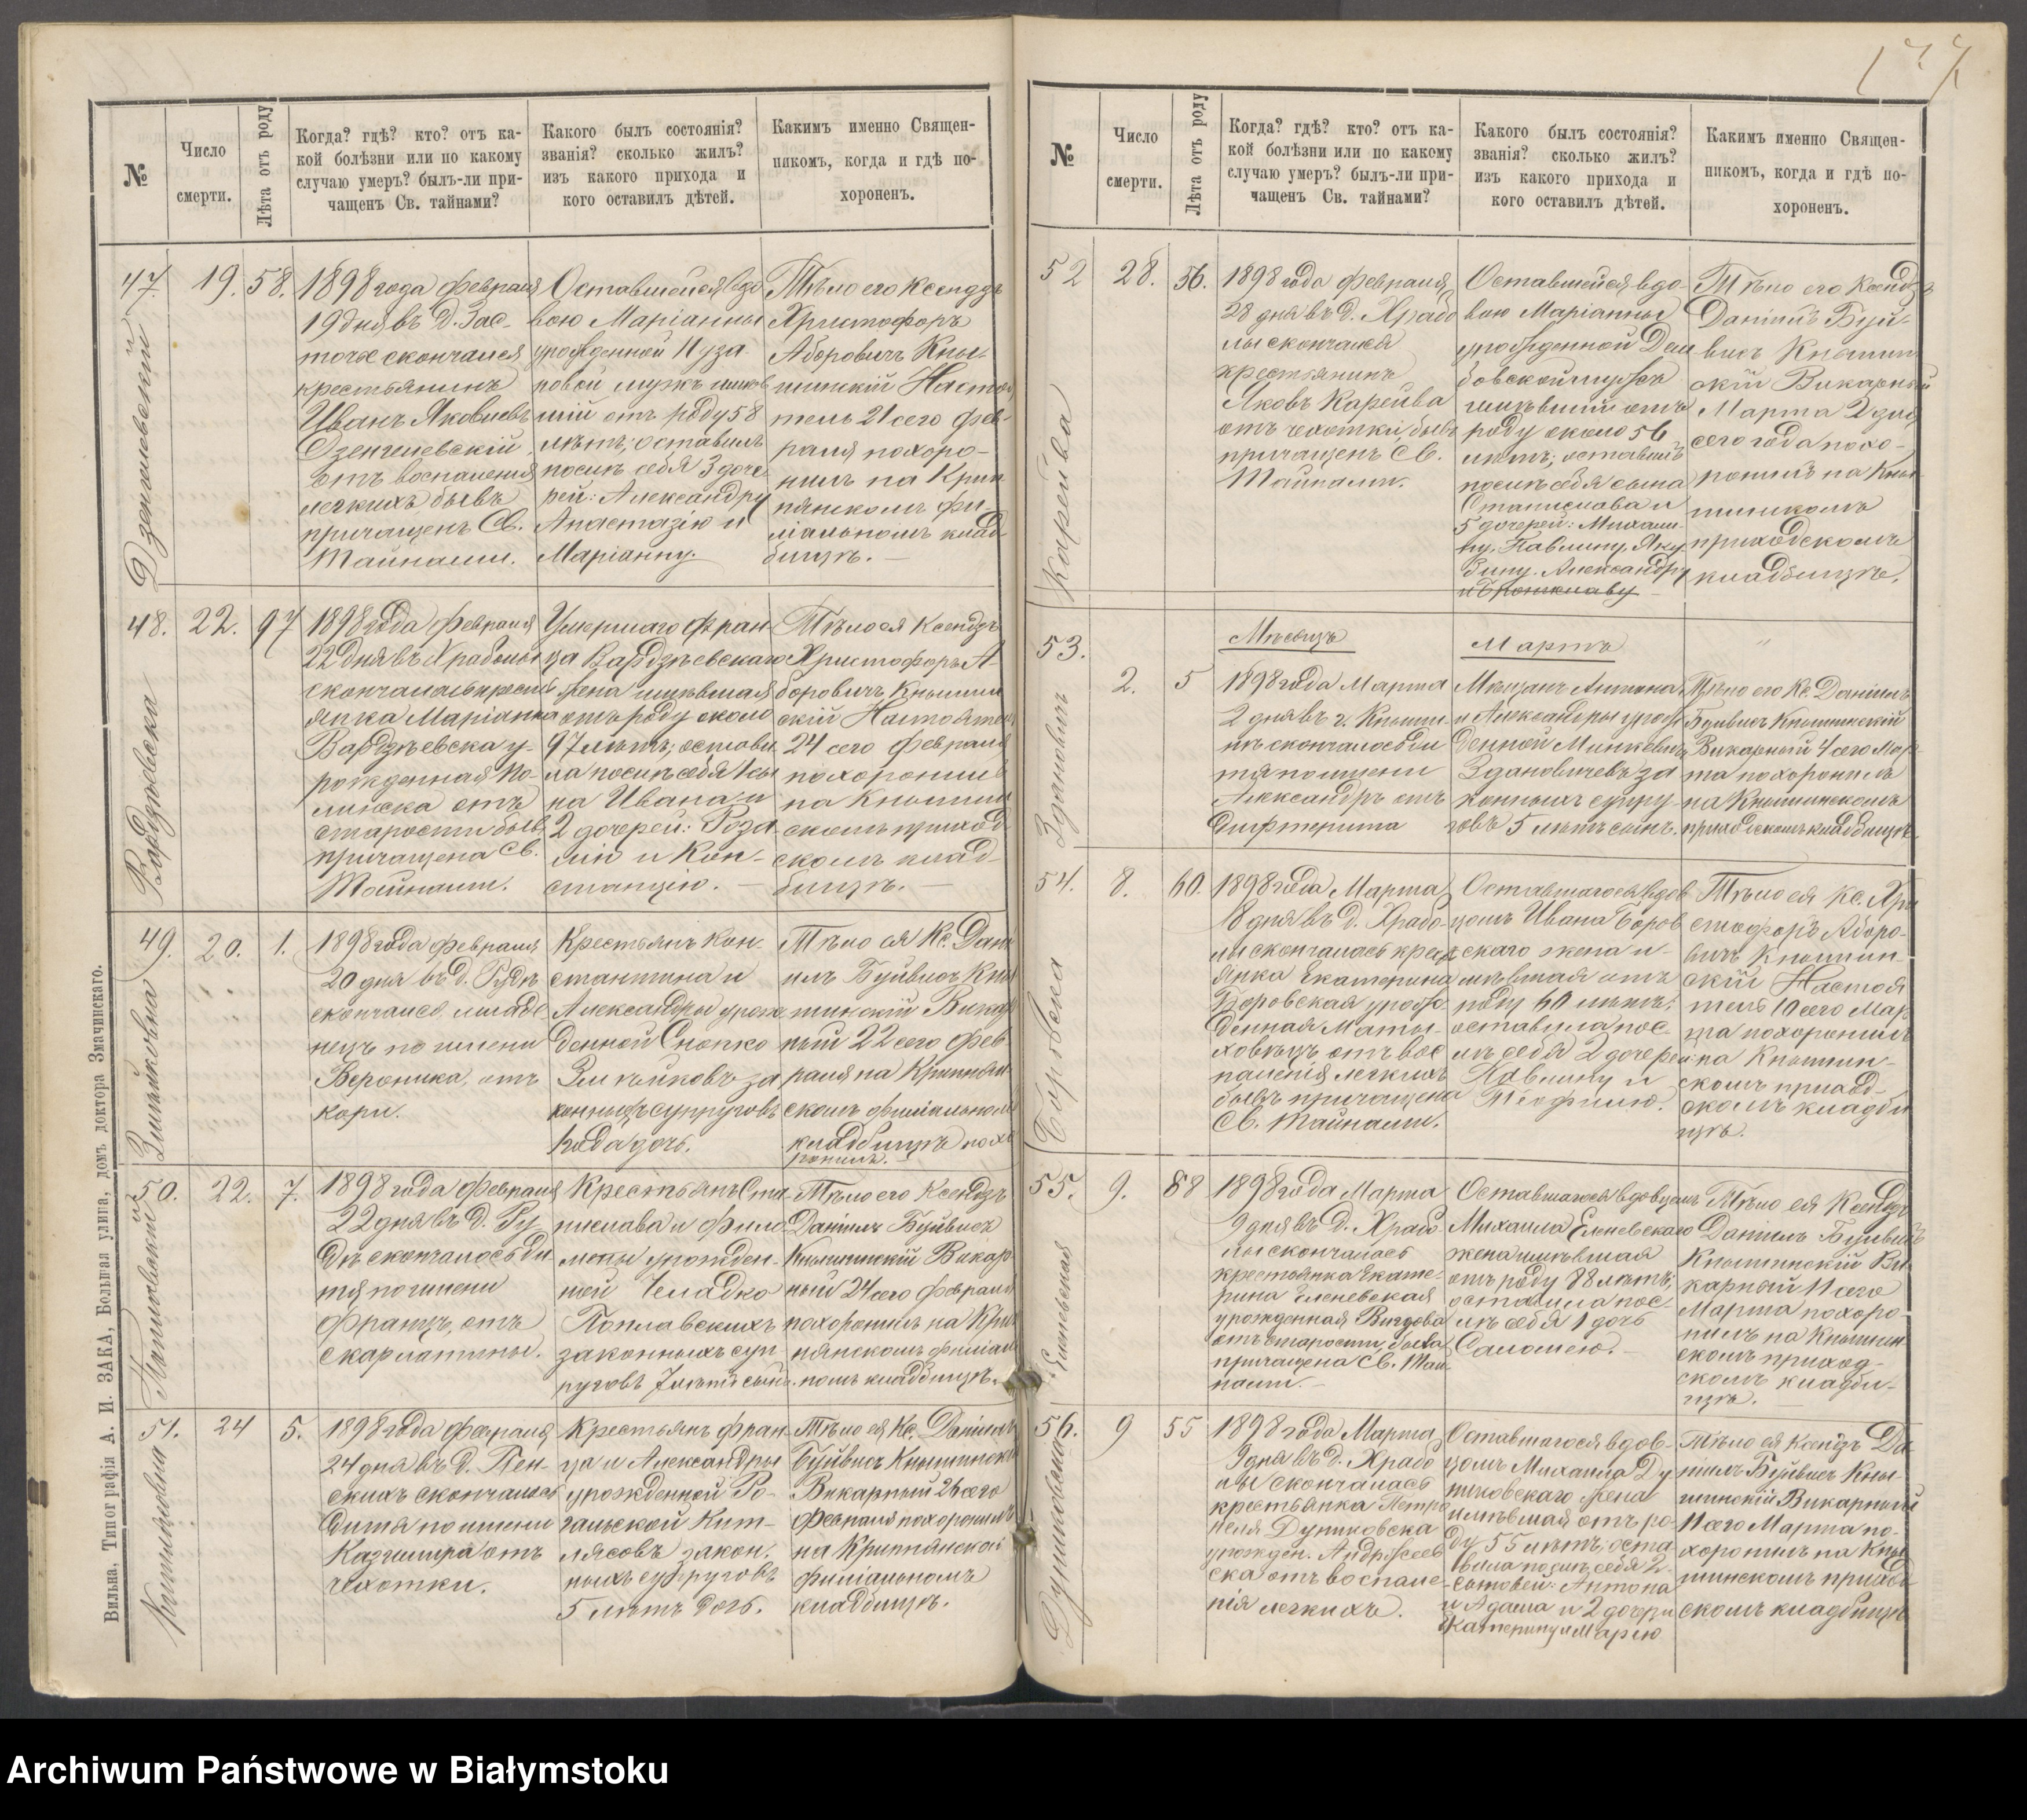 177
№
Число смерти.
Лѣта отъ роду
Когда? гдѣ? кто? отъ ка-
кой болѣзни или по какому
случаю умеръ? былъ-ли при-
чащенъ Св. тайнами?
Какого былъ состоянія?
званія? сколько жилъ?
изъ какого прихода и
кого оставилъ дѣтей.
Какимъ именно Священ-
никомъ, когда и гдѣ по-
хороненъ.
47.
19.
58.
1898 года февраля
19 дня въ д. Зас-
точе скончался
крестьянинъ
Иванъ Яковлевъ
Дзенгелевскій
отъ воспаленія
легкихъ бывъ
причащенъ Св.
Тайнами.
Оставшейся вдо
вою Маріанны
урожденной
мужъ имѣв
шій отъ роду 58
лѣтъ; оставилъ
послѣ себя 3 доче
рей: Александру
Анастазію и
Маріанну.
Тѣло его Ксендзъ
Христофоръ
Аборовичъ Кны-
шинскій Настоя
тель 21 сего фев-
раля похоро-
нилъ на Крип
нянскомъ фи-
ліальномъ клад
бищѣ.
48.
22.
97
1898 года февраля
22 дня въ Храболы
скончалась кресть
янка Маріанна
Вардзѣевска у-
рожденная По-
линска отъ
старости бывъ
причащена Св.
Тайнами.
Умершаго Фран-
ца Вардзѣевскаго
жена имѣвшая
отъ роду около
97 лѣтъ; остави
ла послѣ себя сы
на Ивана и
2 дочерей: Роза-
лію и Кон-
станцію.
Тѣло ея Ксендзъ
Христофоръ А-
боровичъ Кнышин
скій Настоятель
24 сего февраля
похоронилъ
на Кнышин
скомъ приход
скомъ клад-
бищѣ.
49.
20.
1.
1898 года февраля
20 дня въ д. Рудѣ
скончался младе
нецъ по имени
Вероника, отъ
кори.
Крестьянъ Кон-
стантина и
Александры урож
денной Снопко
Змѣйковъ за
конныхъ супруговъ
1 года дочь.
Тѣло ея Кс. Дані
илъ Буйвисъ Кны
шинскій Викар
ный 22 сего фев
раля на Крипнян
скомъ филіальномъ
кладбищѣ похо
ронилъ.
50.
22.
7.
1898 года февраля
22 дня въ д. Ру-
дѣ скончалось ди
тя по имени
Францъ, отъ
скарлатины.
Крестьянъ Ста-
нислава и Фило
мены урожден-
ной Челадко
Поплавскихъ
законныхъ суп
руговъ 7 лѣтъ сынъ.
Тѣло его Ксендзъ
Даніилъ Буйвисъ
Кнышинскій Викар
ный 24 сего февраля
похоронилъ на Крип
нянскомъ филіаль
номъ кладбищѣ.
51.
24
5.
1898 года февраля
24 дня въ д. Пен-
скихъ скончалось
дитя по имени
Казимира отъ
чахотки.
Крестьянъ Фран-
ца и Александры
урожденной Ро-
гальской Кит-
лясовъ закон-
ныхъ супруговъ
5 лѣтъ дочь.
Тѣло ея Кс. Даніилъ
Буйвисъ Кнышинскій
Викарный 26 сего
февраля похоронилъ
на Крипнянскомъ
филіальномъ
кладбищѣ.
Вильна. Типографія А. И. ЗАКА, Большая улица, домъ доктора Змачинскаго.
№
Число смерти.
Лѣта отъ роду
Когда? гдѣ? кто? отъ ка-
кой болѣзни или по какому
случаю умеръ? былъ-ли при-
чащенъ Св. тайнами?
Какого былъ состоянія?
званія? сколько жилъ?
изъ какого прихода и
кого оставилъ дѣтей.
Какимъ именно Священ-
никомъ, когда и гдѣ по-
хороненъ.
52
28.
56.
Карейва
1898 года февраля
28 дня въ д. Храбо
лы скончался
крестьянинъ
Яковъ Карейва
отъ чахотки, бывъ
причащенъ Св.
Тайнами.
Оставшейся вдо-
вою Маріанны
урожденной Дем
бовской мужъ
имѣвшій отъ
роду около 56
лѣтъ; оставилъ
послѣ себя сына
Станислава и
5 дочерей: Михали-
ну, Павлину, Яку-
бину, Александру
и Брониславу
Тѣло его Ксендзъ
Даніилъ Буй-
висъ Кнышин
скій Викарный
Марта 2 дня
сего года похо-
ронилъ на Кны-
шинскомъ
приходскомъ
кладбищѣ.
Мѣсяцъ
Мартъ
53.
2.
5
Здановичъ
1898 года Марта
2 дня въ г. Кныши-
нѣ скончалось ди
тя по имени
Александръ отъ
дифтерита
Мѣщанъ Антона
и Александры урож
денной Минкевичъ
Здановичевъ за
конныхъ супру-
говъ 5 лѣтъ сынъ.
Тѣло его Кс. Даніилъ
Буйвисъ Кнышинскій
Викарный 4 сего Мар-
та похоронилъ
на Кнышинскомъ
приходскомъ кладбищѣ.
54.
8.
60.
Боровска
1898 года Марта
8 дня въ д. Храбо-
лы скончалась крест
янка Екатерина
Боровская урож
денная Маты-
ховецъ отъ вос
паленія легкихъ
бывъ причащена
Св. Тайнами.
Оставшагося вдов
цомъ Ивана Боров
скаго жена и-
мѣвшая отъ
роду 60 лѣтъ;
оставила пос-
лѣ себя 2 дочерей:
Павлину и
Теофилю.
Тѣло ея Кс. Хри
стофоръ Аборо-
вичъ Кнышин-
скій Настоя
тель 10 сего Мар
та похоронилъ
на Кнышин-
скомъ приход-
скомъ кладби
щѣ.
55.
9.
88
Еленевская
1898 года Марта
9 дня въ д. Храбо
лы скончалась
крестьянка Екате-
рина Еленевская
урожденная
отъ старости, бывъ
причащена Св. Тай
нами.
Оставшагося вдовцомъ
Михаила Еленевскаго
жена имѣвшая
отъ роду 88 лѣтъ;
оставила пос-
лѣ себя 1 дочь
Саломею.
Тѣло ея Ксендзъ
Даніилъ Буйвисъ
Кнышинскій Ви
карный 11 сего
Марта похоро-
нилъ на Кнышин
скомъ приход-
скомъ кладби-
щѣ.
56.
9
55
1898 года Марта
9 дня въ д. Храбо
лы скончалась
крестьянка Петро
неля Дуниковска
урожден. Андржеев
ска отъ воспале-
нія легкихъ.
Оставшагося вдов-
цомъ Михаила Ду
никовскаго жена
имѣвшая отъ ро-
ду 55 лѣтъ; оста
вила послѣ себя 2
сыновей: Антона
и Адама и 2 дочери
Катерину и Марію
Тѣло ея Ксендзъ Да
ніилъ Буйвисъ Кны
шинскій Викарный
11 сего Марта по-
хоронилъ на Кны
шинскомъ приход
скомъ кладбищѣ
Archiwum Państwowe w Białymstoku